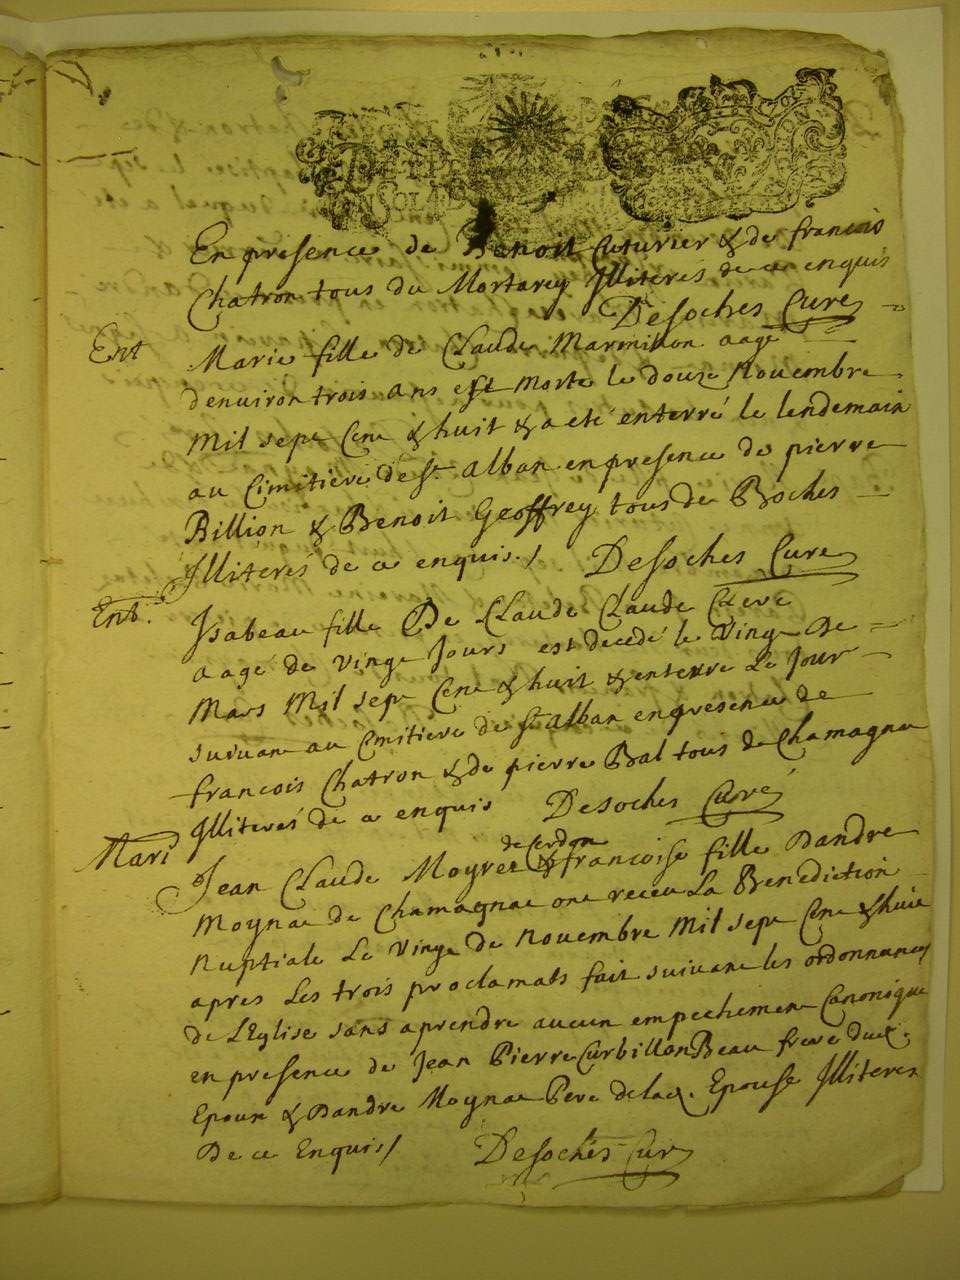 En presence de Benoit Couturier & de francois
Chatron tous du Mortarey Illiteres de ce enquis
Desoches Cure
Ent
Marie fille de Claude Marmillon aagé
denuiron trois ans est morte le douze Nouembre
mil sept Cent & huit & a eté enterré le lendemain
au Cimitiere de St alban en presence de pierre
Billion & Benoit Geoffrey tous de Boches
Illiterés de ce enquis./ Desoches Cure
Ent.
Isabeau fille De Claude Claude
aagé de vingt Jours est decedé le vingt de
Mars Mil sept Cent & huit & enterré Le Jour
suivant au Cimitiere de St alban en presence de
francois Chatron & de pierre Bal tous de Chamagnat
Illiterés de ce enquis Desoches Curé
Mari
de Cerdon
Jean Claude Moyret & francoise fille Dandre
Moynat de Chamagnat ont receu La Benediction
Nuptiale Le vingt de Nouembre Mil sept Cent & huit
apres Les trois proclamats fait suivant les ordonnances
de L'Eglise sans aprendre aucun empechement Canonique
en presence de Jean Pierre Curbillon Beau frere dud.
Epoux & Dandre Moynat Pere de lad. Epouse Illiteres
De ce Enquis/ Desoches Cure